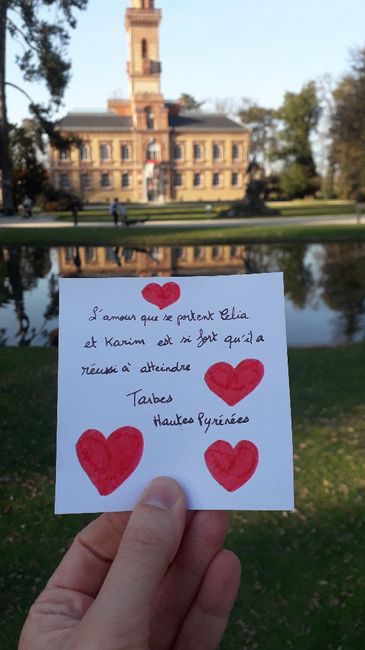 L'amour que se portent Célia
et Karim est si fort qu'il a
réussi à atteindre
Tarbes
Hautes Pyrénées